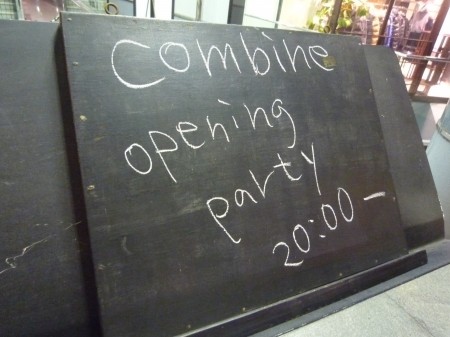 combine
opening
party
20:00 –